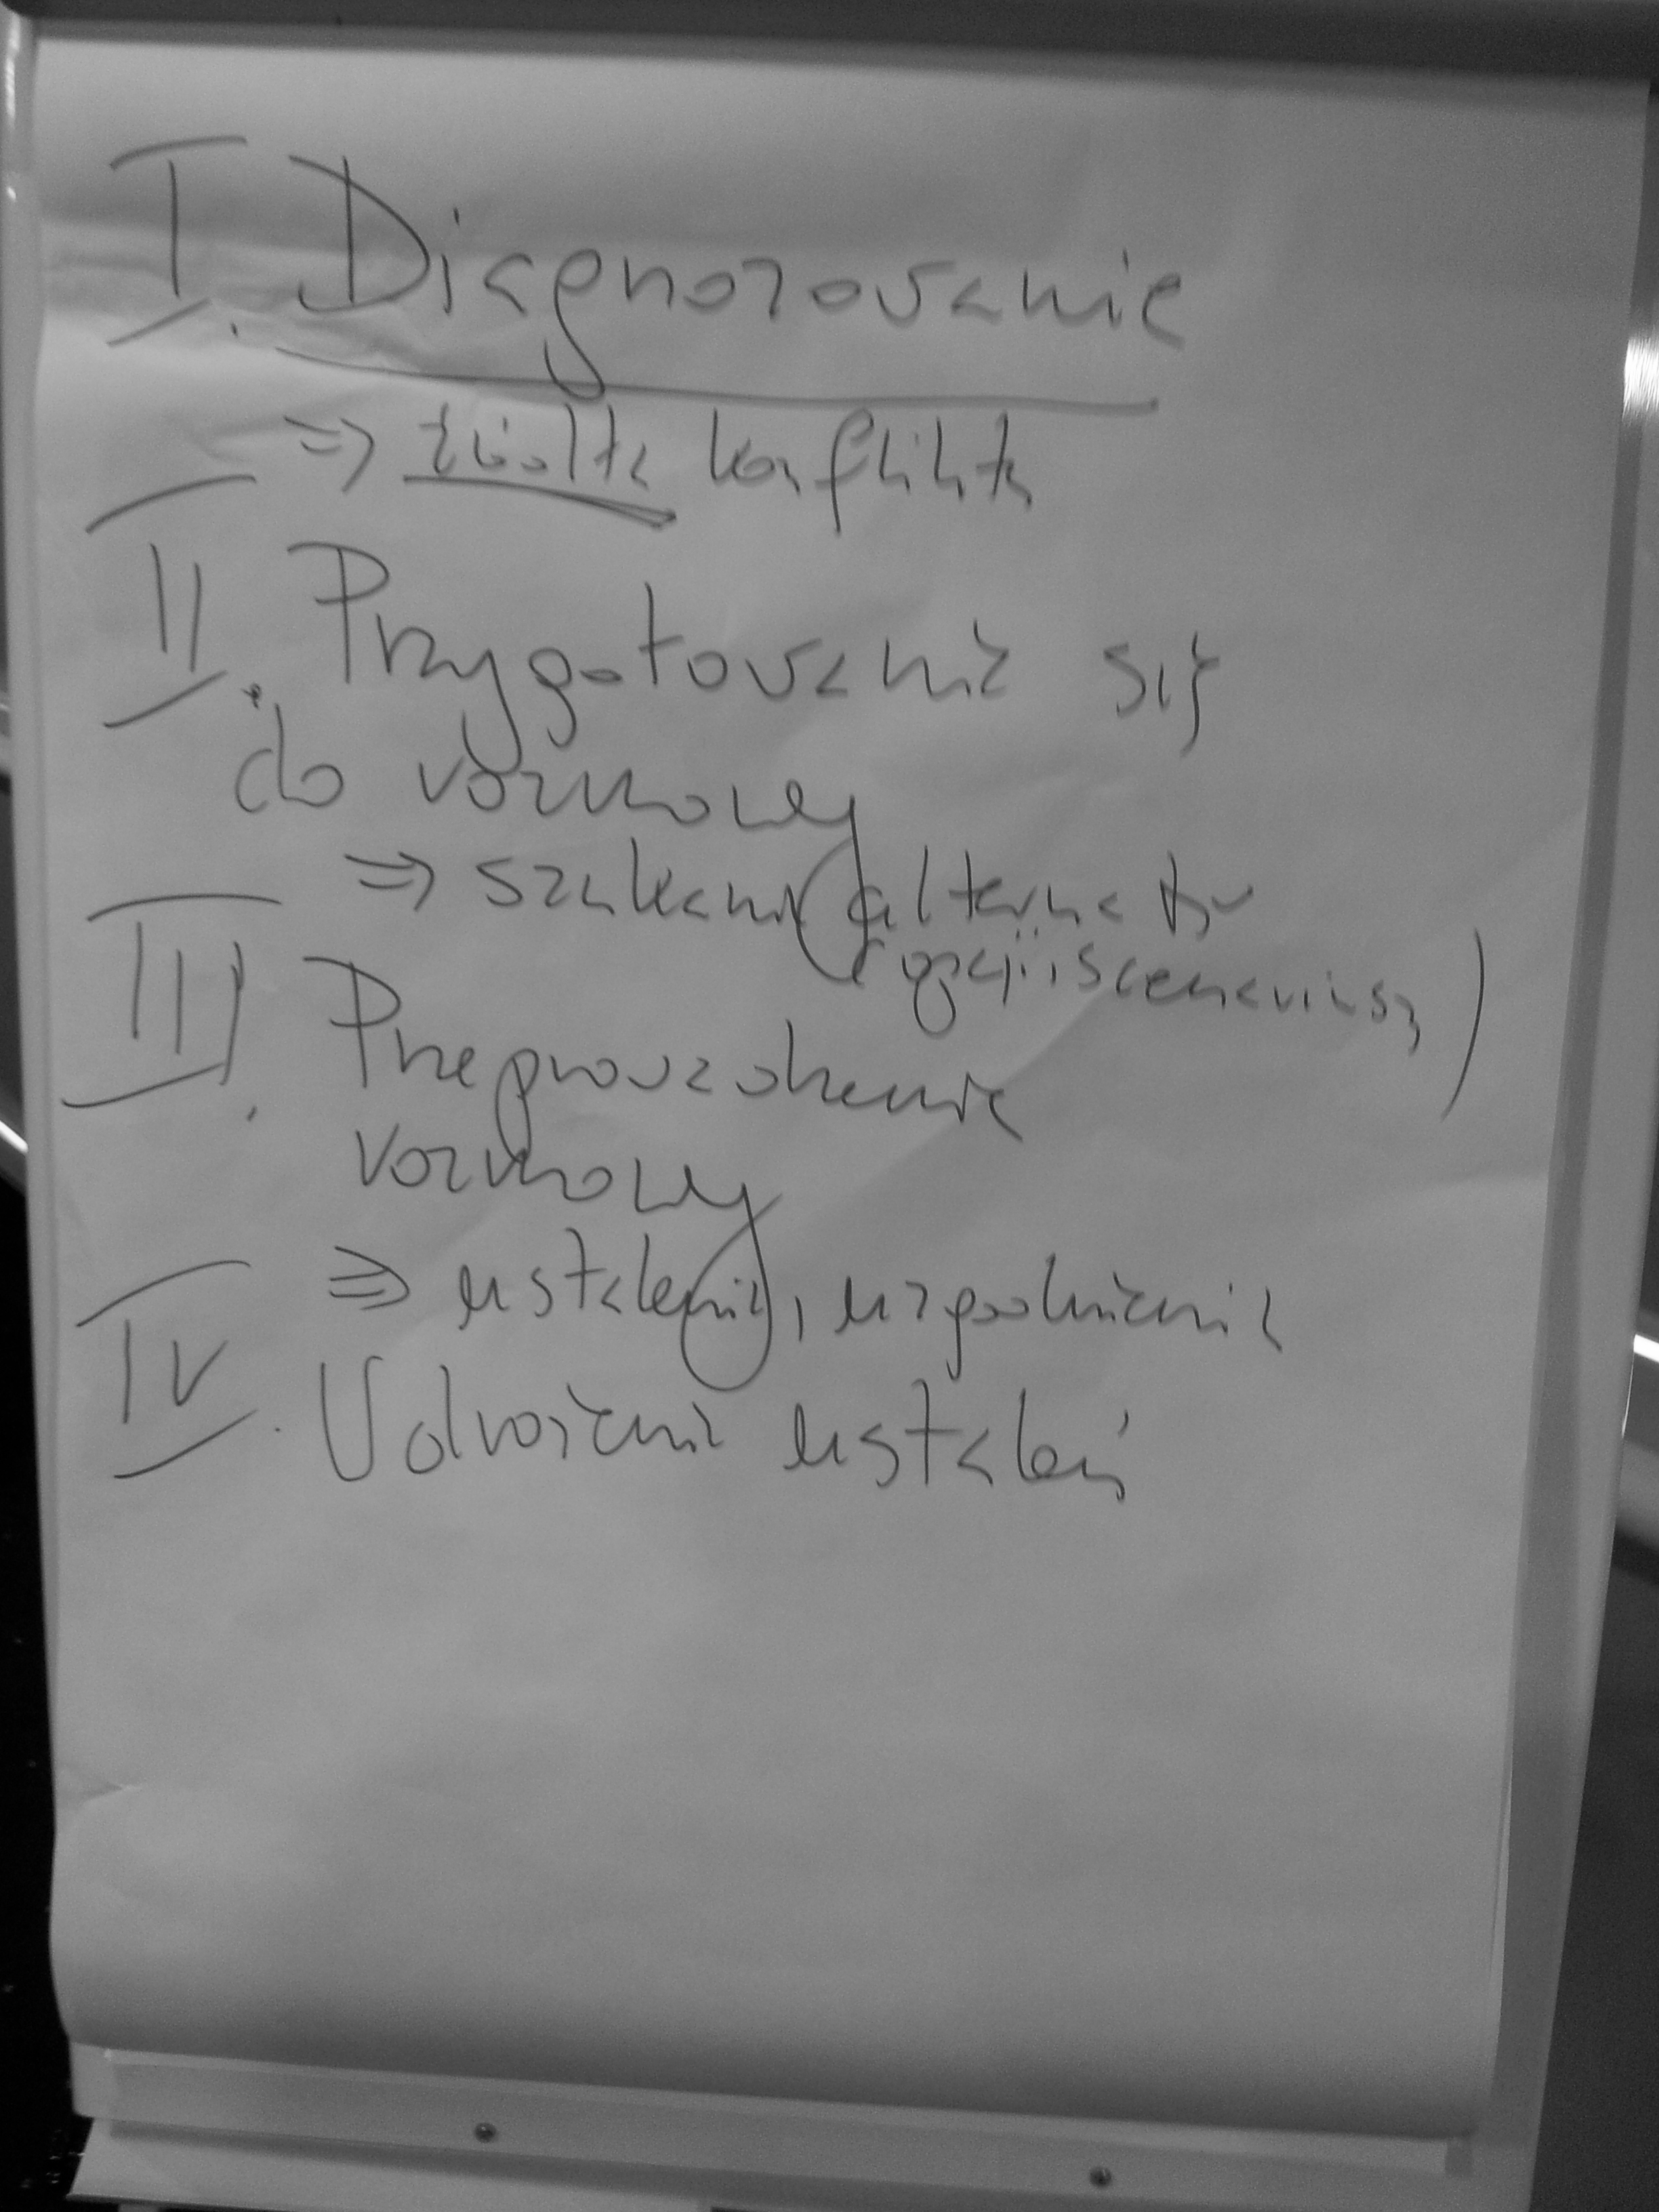 I. Diagnozowanie
⇒ źródła konfliktu
II. Przygotowanie się
do rozmowy
⇒ szukanie alternatyw
(opcji i scenariuszy)
III. Przeprowadzenie
rozmowy
⇒ ustalenia, uzgodnienia
IV. Wdrożenie ustaleń